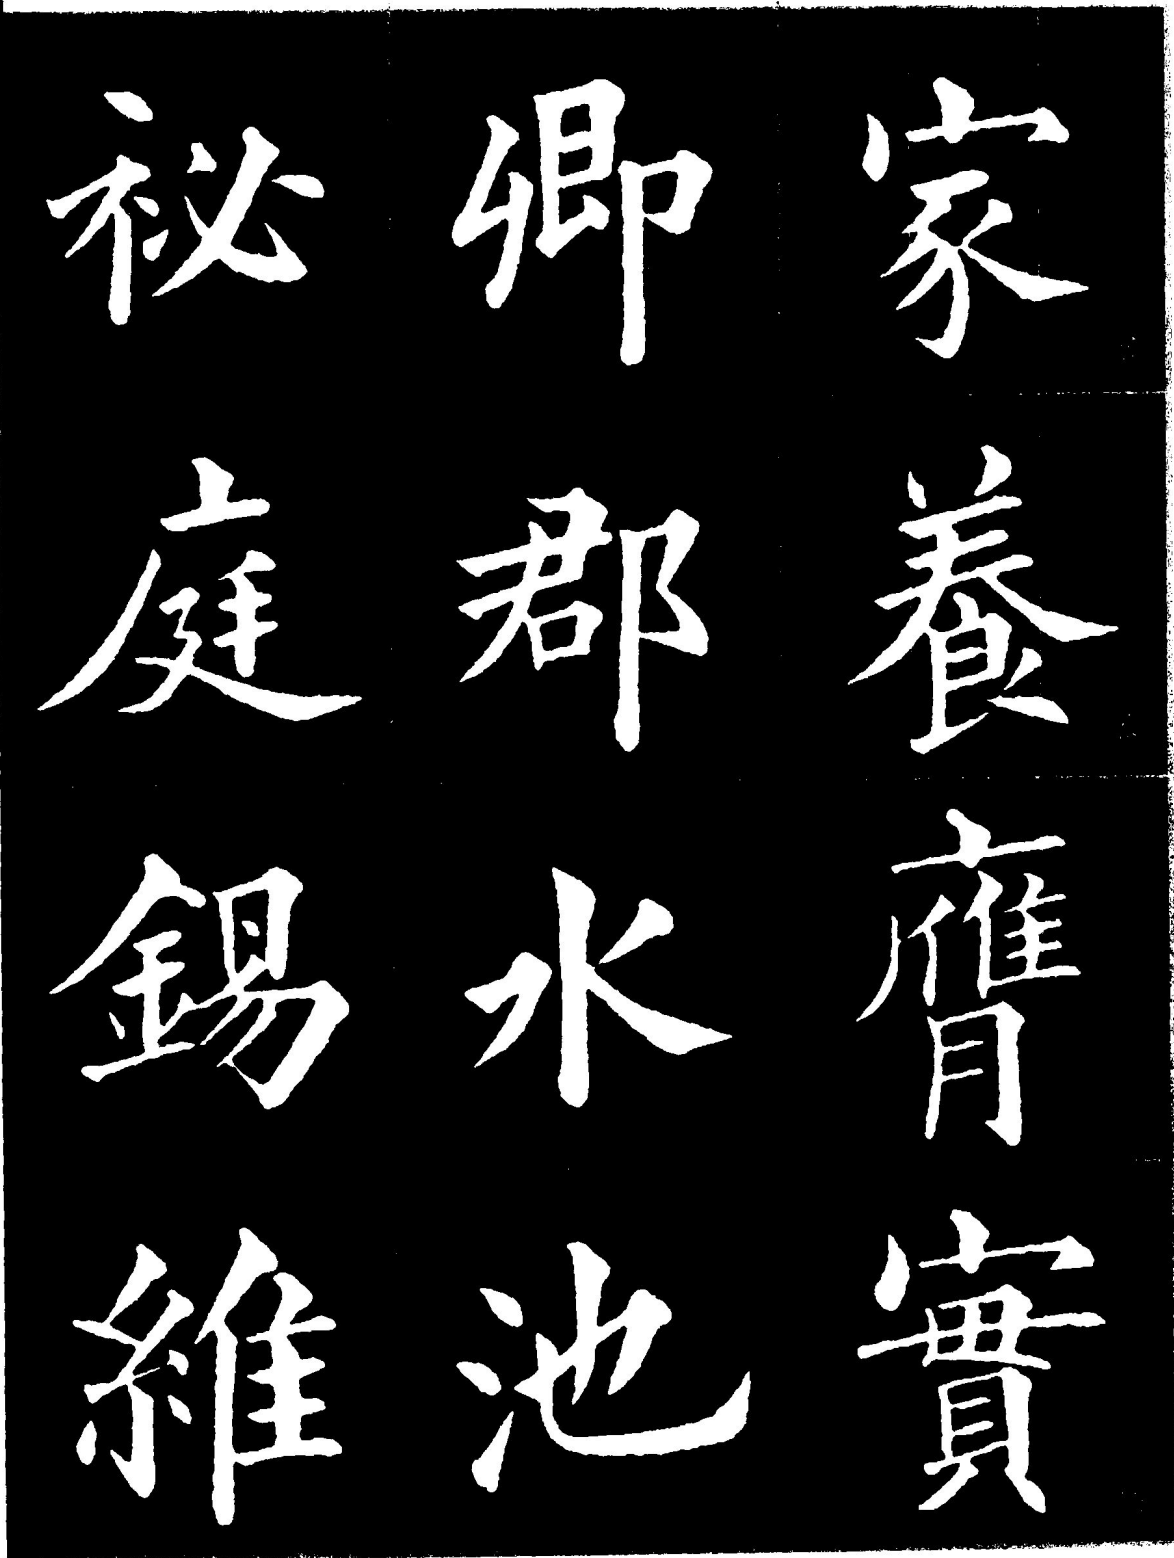 家養膺實
卿郡水池
祕庭錫維